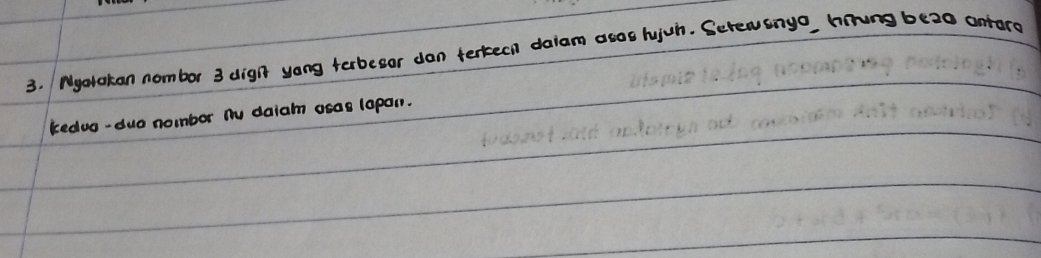 3. Nyatakan nombor 3 digit yang terbesar dan terkecil dalam asas tujuh. Seterusnya, hitung beza antara
kedua-dua nombor itu dalam asas lapan.